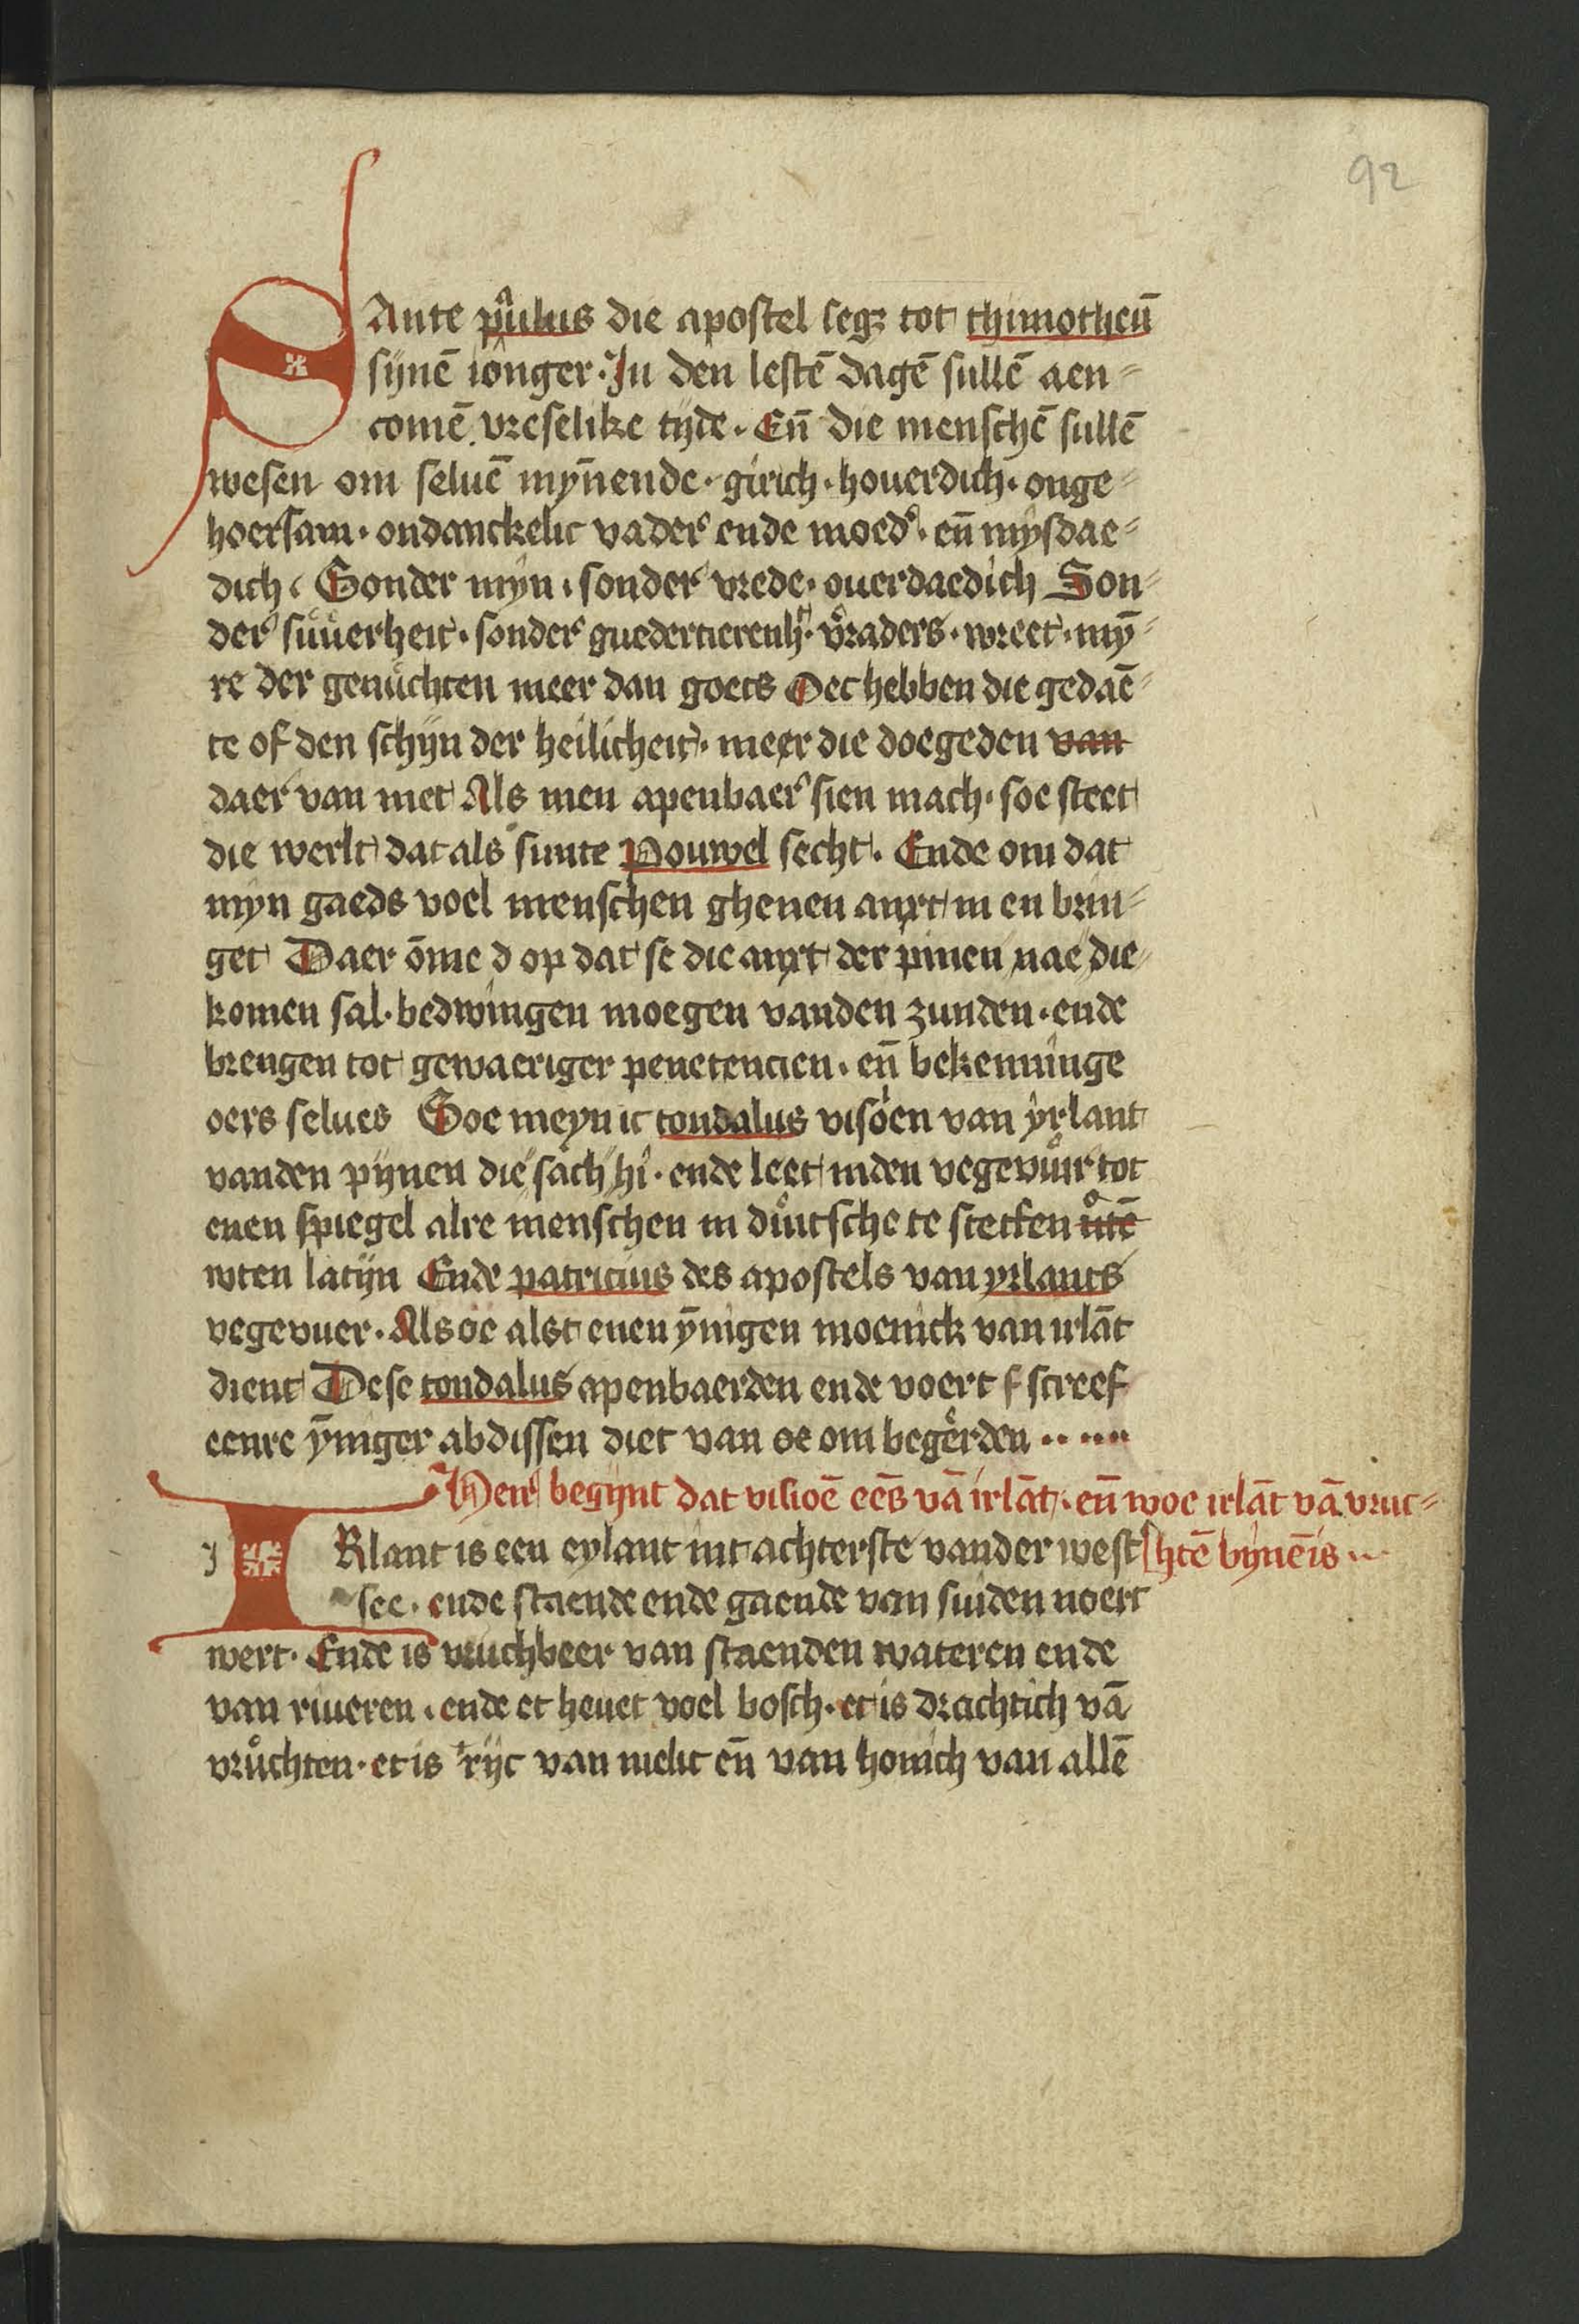 92
SAnte paulus die apostel segȝ tot thimotheū
sijnē ionger · In den lestē dagē sullē aen=
comē vreselike tijde · Eñ die menschē sullē
wesen om seluē myn̄ende · girich · houerdich · onge=
hoersam · ondanckelic vader ende moed' · eñ mysdae=
dich · Sonder myn · sonder vrede · ouerdaedich Son=
der suůerheit · sonder guedertierenh't · v'raders · wreet · mȳ=
re der genůchten meer dan goets Oec hebben die gedaē=
te of den schijn der heilicheit · meer die doegeden van
daer van niet Als men apenbaer sien mach · soe steet
die werlt dat als sunte Pouwel secht · Ende om dat
myn gaeds voel menschen ghenen anxt in en brin=
get Daer ōme d op dat se die anxt der pinen nae die
komen sal · bedwingen moegen vanden zunden · ende
brengen tot gewaeriger penetencien · eñ bekenninge
oers selues Soe meyn ic tondalus visoen van yrlant
vanden pijnen die sach hi · ende leet inden vegevůir tot
enen spiegel alre menschen in důitsche te setten ůtē
wten latijn Ende patricius des apostels van yrlants
vegevuer · Als oe alst enen ȳnigen moenick van irlāt
dient Dese tondalus apenbaerden ende voert f screef
eenre ȳniger abdissen diet van oe om begerden · · · · ·
Heir begijnt dat visioē eēs vā irlāt · eñ woe irlāt vā vruc=
IRlant is een eylant int achterste vander west htē bynē is ...
see · ende staende ende gaende van suiden noert
wert · Ende is vruchbeer van staenden wateren ende
van riueren · ende et heuet voel bosch · et is drachtich vā
vrůchten · et is rijc van melic eñ van honich van allē